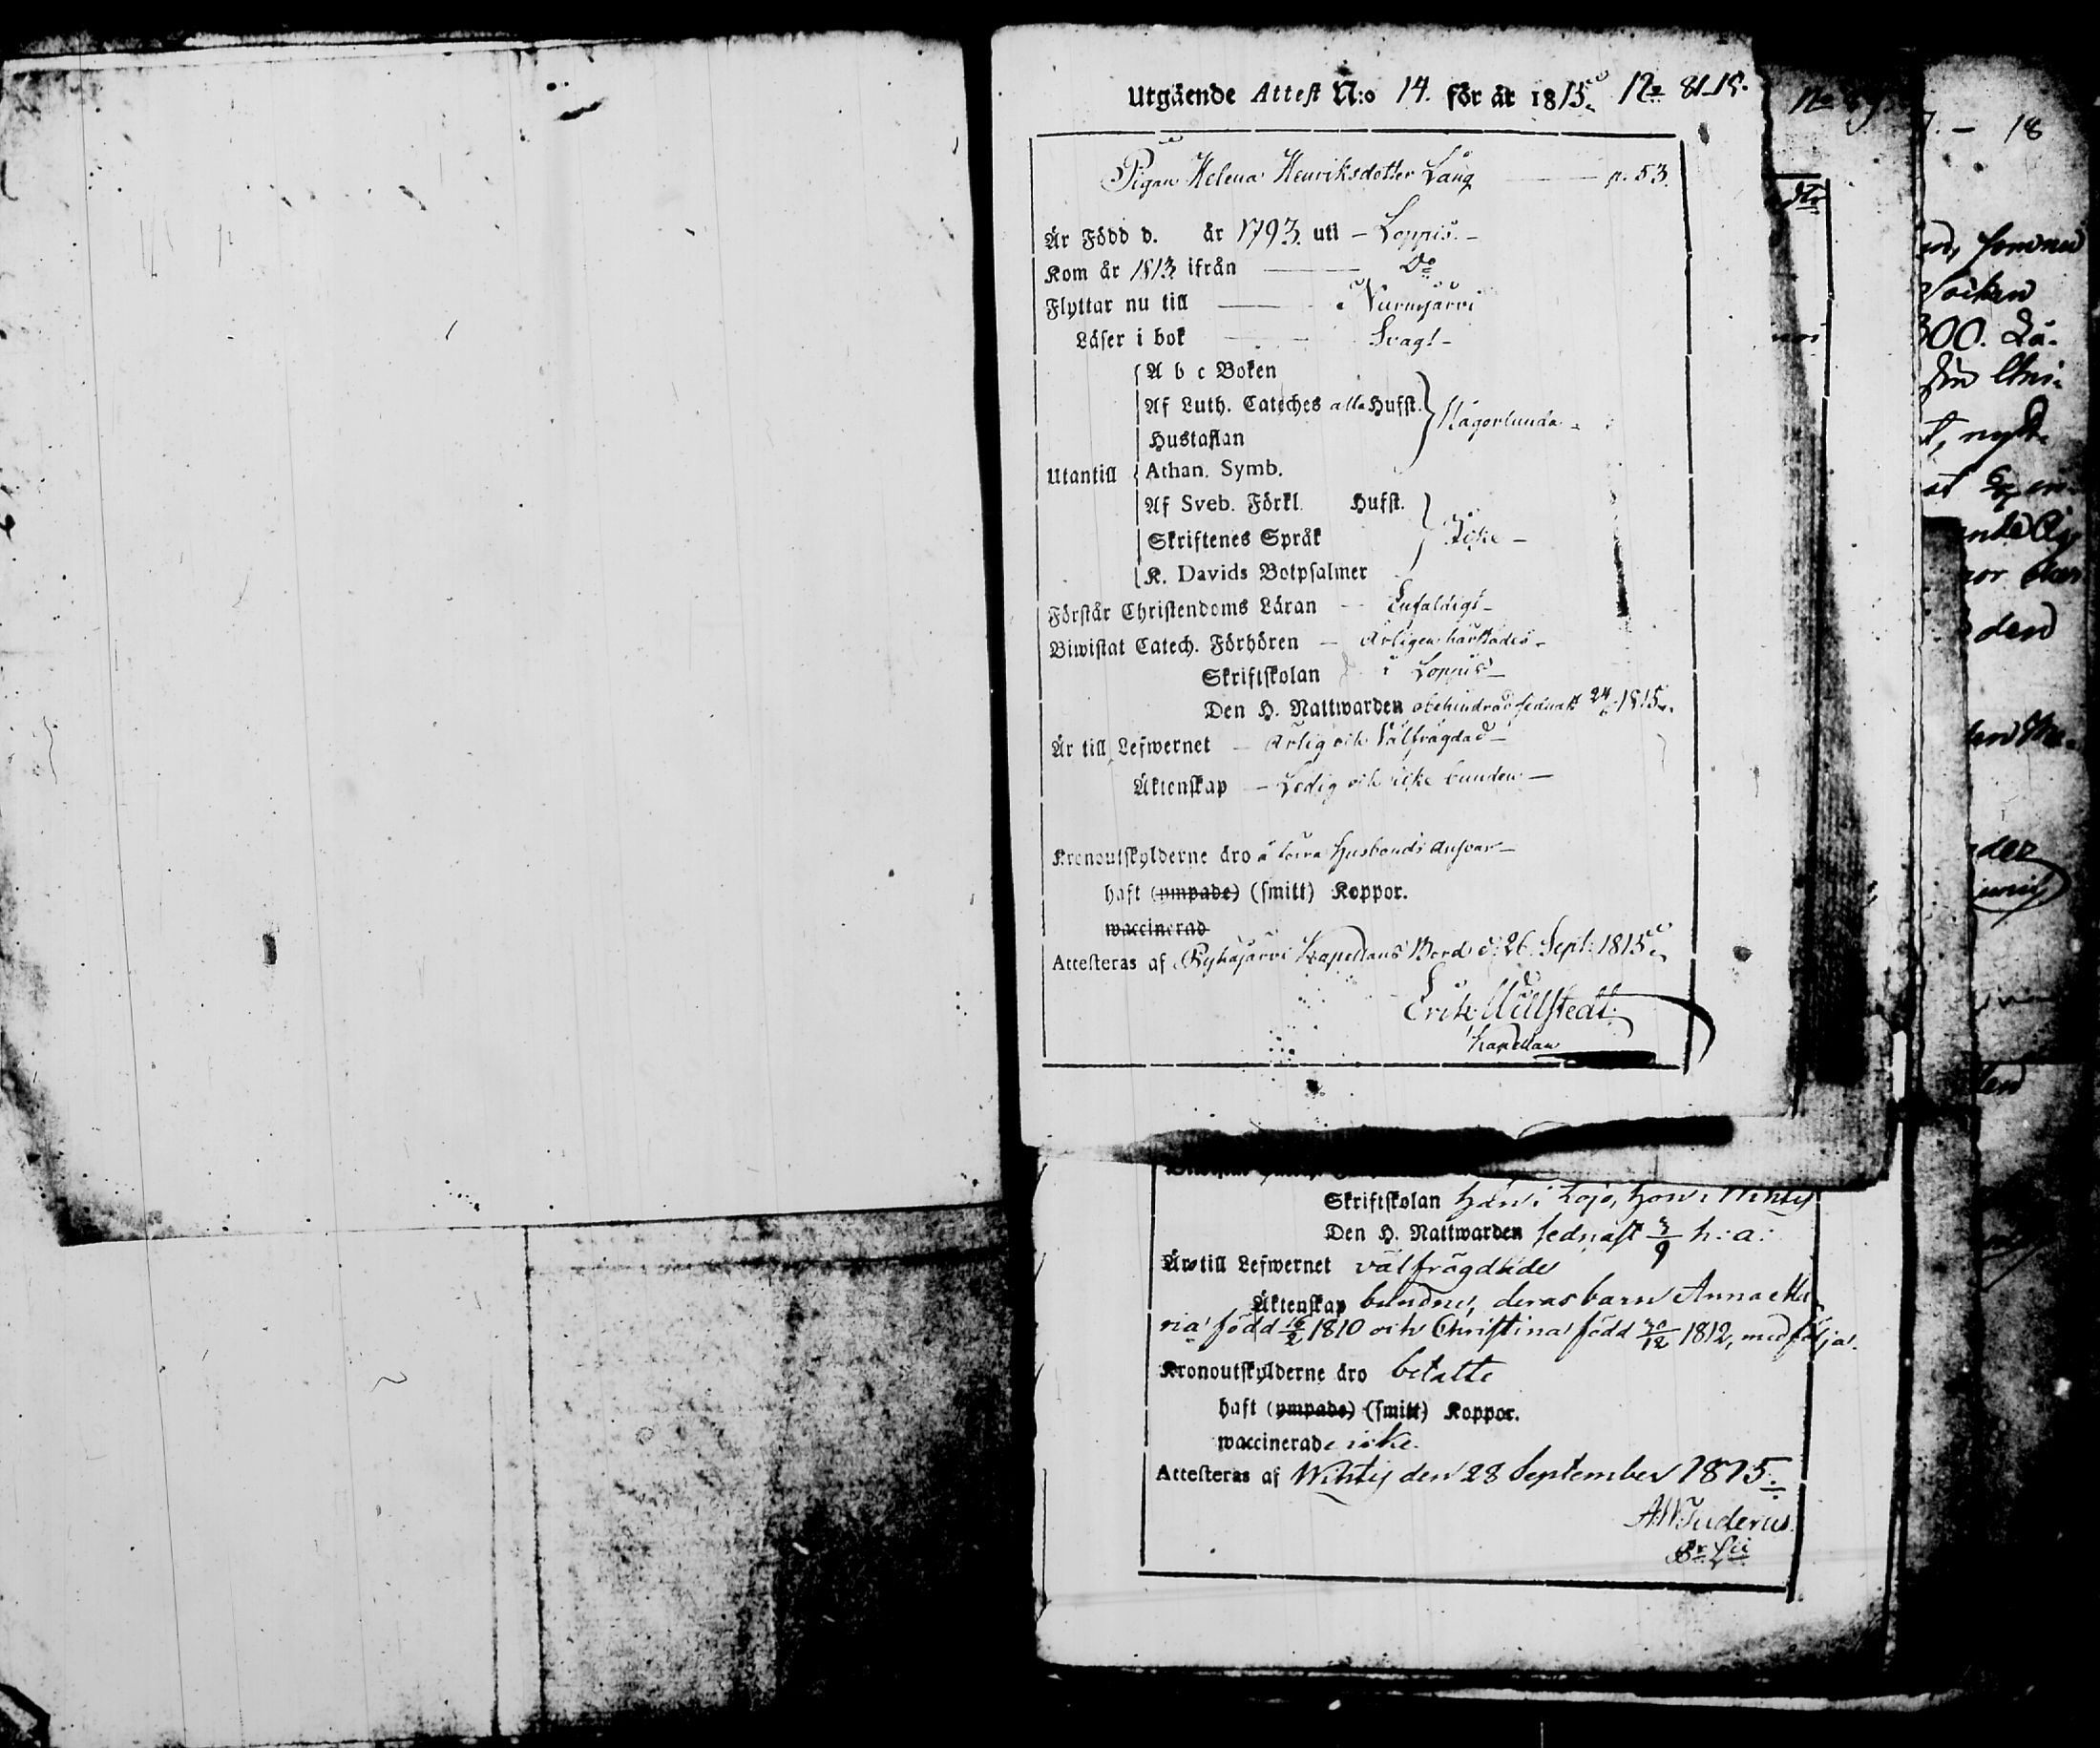 Utgående Attest N:o 14. för år 1815. No 81-15.
Pigan Helena Henriksdotter Lång — p. 53.
Är Född d. år 1793. uti – Loppis. –
Kom år 1813 ifrån — Do
Flyttar nu till — Nurmijärvi
Läser i bok — Svagt –
A b c Boken
Af Luth. Cateches alla Hufst. Någorlunda –
Hustaflan
Utantill Athan. Symb.
Af Sveb. Förkl. Hufst.
Skriftenes Språk Icke –
K. Davids Botpsalmer
Förstår Christendoms Läran – Enfaldigt –
Biwistat Catech. Förhören – Årligen härstädes –
Skriftskolan i Loppis –
Den H. Nattwarden obehindrad sednast 24/6 1815.
Är till Lefwernet – Ärlig och Välfrägdad –
Äktenskap – Ledig och icke bunden –
Kronoutskylderne äro å förra Husbonds ansvar –
haft (ympade) (smitt) Koppor.
waccinerad
Attesteras af Pyhäjärvi Kapellans Bord d. 26. Sept. 1815.
Erik Millstedt
Kapellan
Skriftskolan han i Lojo, hon i Wihtis
Den H. Nattwarden sednast 3/9 h: a:
Äro till Lefwernet välfrägdade
Äktenskap bundne, deras barn Anna Ma
ria född 16/2 1810 och Christina född 30/12 1812, medfölja.
Kronoutskylderne äro betalte
haft (ympade) (smitt) Koppor.
waccinerade icke.
Attesteras af Wihtis den 28 September 1815.
A.W. Juderus.